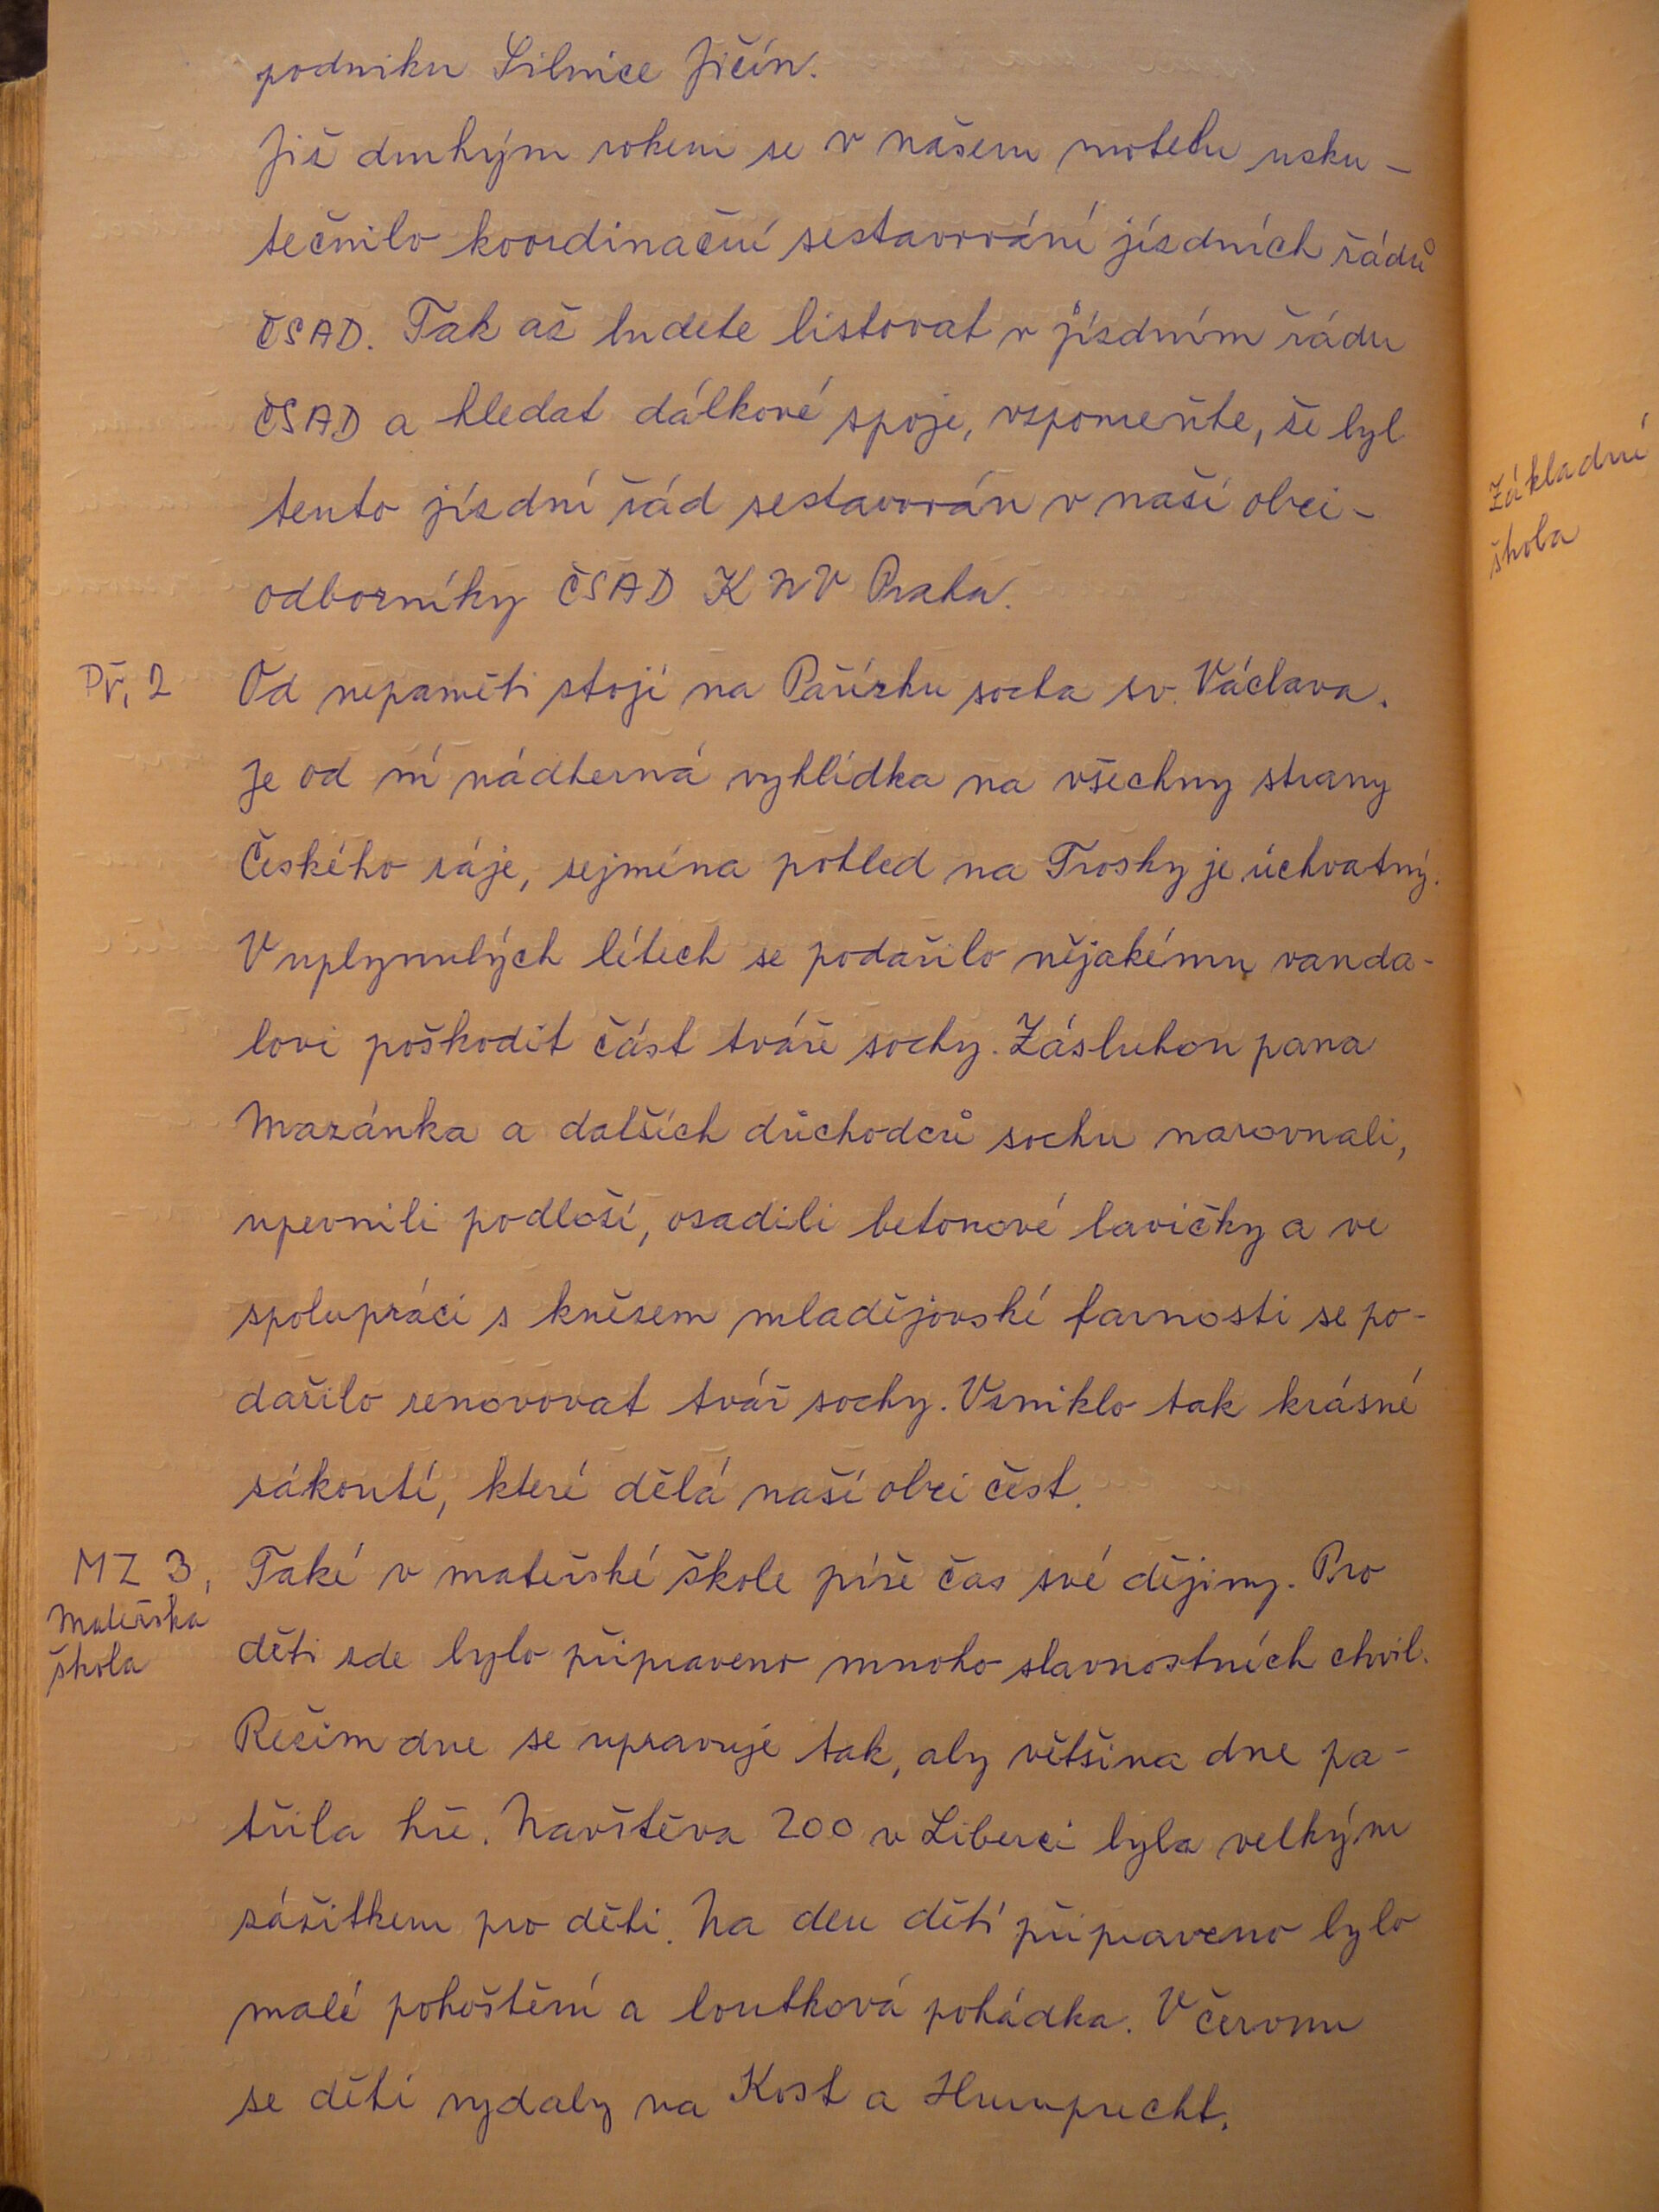 podniku Silnice Jičín.
Již druhým rokem se v našem motelu usku-
tečnilo koordinační sestavování jízdních řádů
ČSAD. Tak až budete listovat v jízdním řádu
ČSAD a hledat dálkové spoje, vzpomeňte, že byl
tento jízdní řád sestavován v naší obci -
odborníky ČSAD KNV Praha.
Př. 2 Od nepaměti stojí na Pařízku socha sv. Václava.
Je od ní nádherná vyhlídka na všechny strany
Českého ráje, zejména pohled na Trosky je úchvatný.
V uplynulých létech se podařilo nějakému vanda-
lovi poškodit část tváře sochy. Zásluhou pana
Mazánka a dalších důchodců sochu narovnali,
upevnili podloží, osadili betonové lavičky a ve
spolupráci s knězem mladějovské farnosti se po-
dařilo renovovat tvář sochy. Vzniklo tak krásné
zákoutí, které dělá naší obci čest.
MZ 3, Také v mateřské škole píše čas své dějiny. Pro
Mateřská
škola
děti zde bylo připraveno mnoho slavnostních chvil.
Režim dne se upravuje tak, aby většina dne pa-
třila hře. Navštěva ZOO v Liberci byla velkým
zážitkem pro děti. Na den dětí připraveno bylo
malé pohoštění a loutková pohádka. V červnu
se děti vydaly na Kost a Humprecht.
Základní
škola